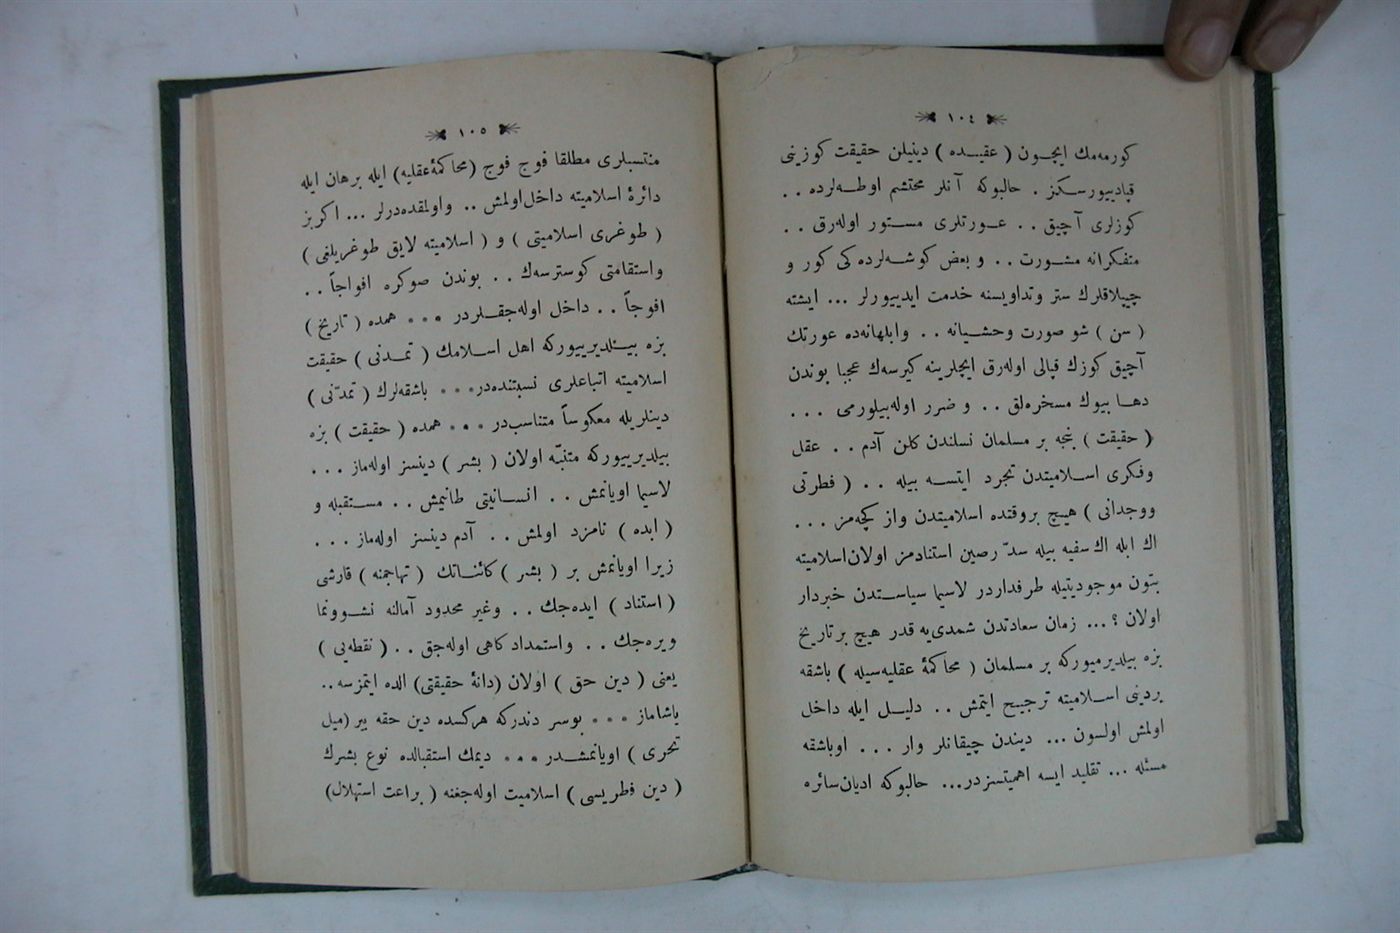 ١٠٤
كورمه‌مك ايچــون ( عقيــده ) دينيلن حقيقت كوزينى
قپاديبورسكز . حالبوكه آنلر محتشم اوطــه‌لرده . .
كوزلرى آچيق . . عــورتلرى مستــور اوله‌رق . .
متفكرانه مشــورت . . و بعض كوشــه‌لرده كى كور و
چيپلاقلرك ستر وتداويسنه خدمت ايدييورلر ... ايشته
( سن ) شو صورت وحشــيانه . . وابلهانه‌ده عورتك
آچيق كوزك قپالى اوله‌رق ايچلرينه كيرسه‌ك عجبا بوندن
دهــا بيوك مسخره‌لق . . و ضرر اوله‌بيلورمى ...
( حقيقت ) نجبه بر مسلمان نسلندن كلن آدم . . عقل
وفكرى اســلاميتدن تجرد ايتســه بيله . . ( فطرتى
ووجدانى ) هيچ بروقتده اسلاميتدن واز كچه‌مز ...
اك ابله اك سفيه بيله سدّ رصين استنادمز اولان‌اسلاميته
بتون موجوديتيله طرفداردر لاسيما سياستــدن خبردار
اولان ؟ ... زمان سعادتدن شمدى‌يه قدر هيچ برتاريخ
بزه بيلديرميوركه بر مسلمان ( محاكمهٔ عقليه‌سيله ) باشقه
بردينى اســلاميته ترجيــح ايتمش . . دليــل ايله داخل
اولمش اولسون ... ديندن چيقانلر وار ... اوباشقه
مسئله ... تقليد ايسه اهميتسزدر... حالبوكه اديان‌سائره
١٠٥
منتسبلرى مطلقا فوج فوج (محاكمهٔ عقليه) ايله برهان ايله
دائرهٔ اسلاميته داخل‌اولمش .. واولمقده‌درلر ... اكربز
( طوغرى اسلاميتى ) و ( اسلاميته لايق طوغريلغى )
واستقامتى كوسترسه‌ك . . بوندن صوكره افواجاً . .
افوجاً . . داخل اوله‌جقــلردر ... همده ( تاريخ )
بزه بيــلديرييوركه اهل اســلامك ( تمــدنى ) حقيقت
اسلاميته اتباعلرى نسبتنده‌در... باشقه‌لرك ( تمدّنى )
دينلريله معكوساً متناسب‌در ... همده ( حقيقت ) بزه
بيلديرييوركه متنبّه اولان ( بشر ) دينسز اوله‌ماز ...
لاسيما اويانمش . . انســانيتى طانيمش . . مســتقبله و
( ابده ) نامزد اولمش . . آدم دينسز اوله‌ماز ...
زيرا اويانمش بر ( بشر ) كائنــاتك ( تهاجمنه ) قارشى
( استناد ) ايده‌جك . . وغير محدود آمالنه نشــوونما
ويره‌جك . . واستمدادكاهى اوله‌جق . . ( نقطه‌يى )
يعنى ( دين حق ) اولان (دانهٔ حقيقتى) الده ايتمزسه ..
ياشاماز ... بوسر دندركه هركسده دين حقه بير (ميل
تحرى ) اويانمشــدر ... ديمك استقبالده نوع بشرك
( دين فطريسى ) اسلاميت اوله‌جغنه ( براعت استهلال)